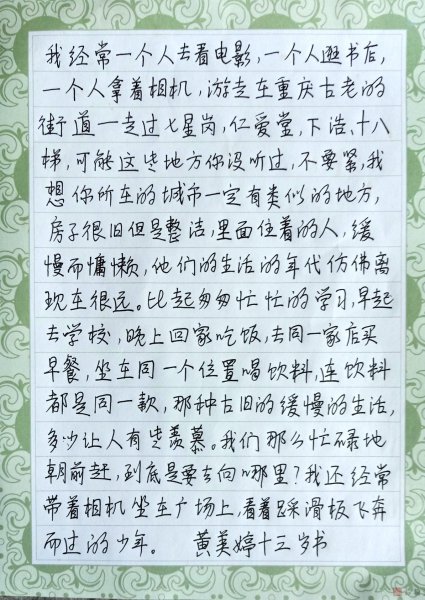 我经常一个人去看电影,一个人逛书店,
一个人拿着相机,游走在重庆古老的
街道一走过七星岗,仁爱堂,下浩、十八
梯,可能这些地方你没听过,不要紧,我
想你所在的城市一定有类似的地方,
房子很旧但是整洁,里面住着的人,缓
慢而慵懒,他们的生活的年代仿佛离
现在很远。比起匆匆忙忙的学习,早起
去学校,晚上回家吃饭,去同一家店买
早餐,坐在同一个位置喝饮料,连饮料
都是同一款,那种古旧的缓慢的生活,
多少让人有些羡慕。我们那么忙碌地
朝前赶,到底是要去向哪里?我还经常
带着相机坐在广场上,看着踩滑板飞奔
而过的少年。 黄美婷十三岁书